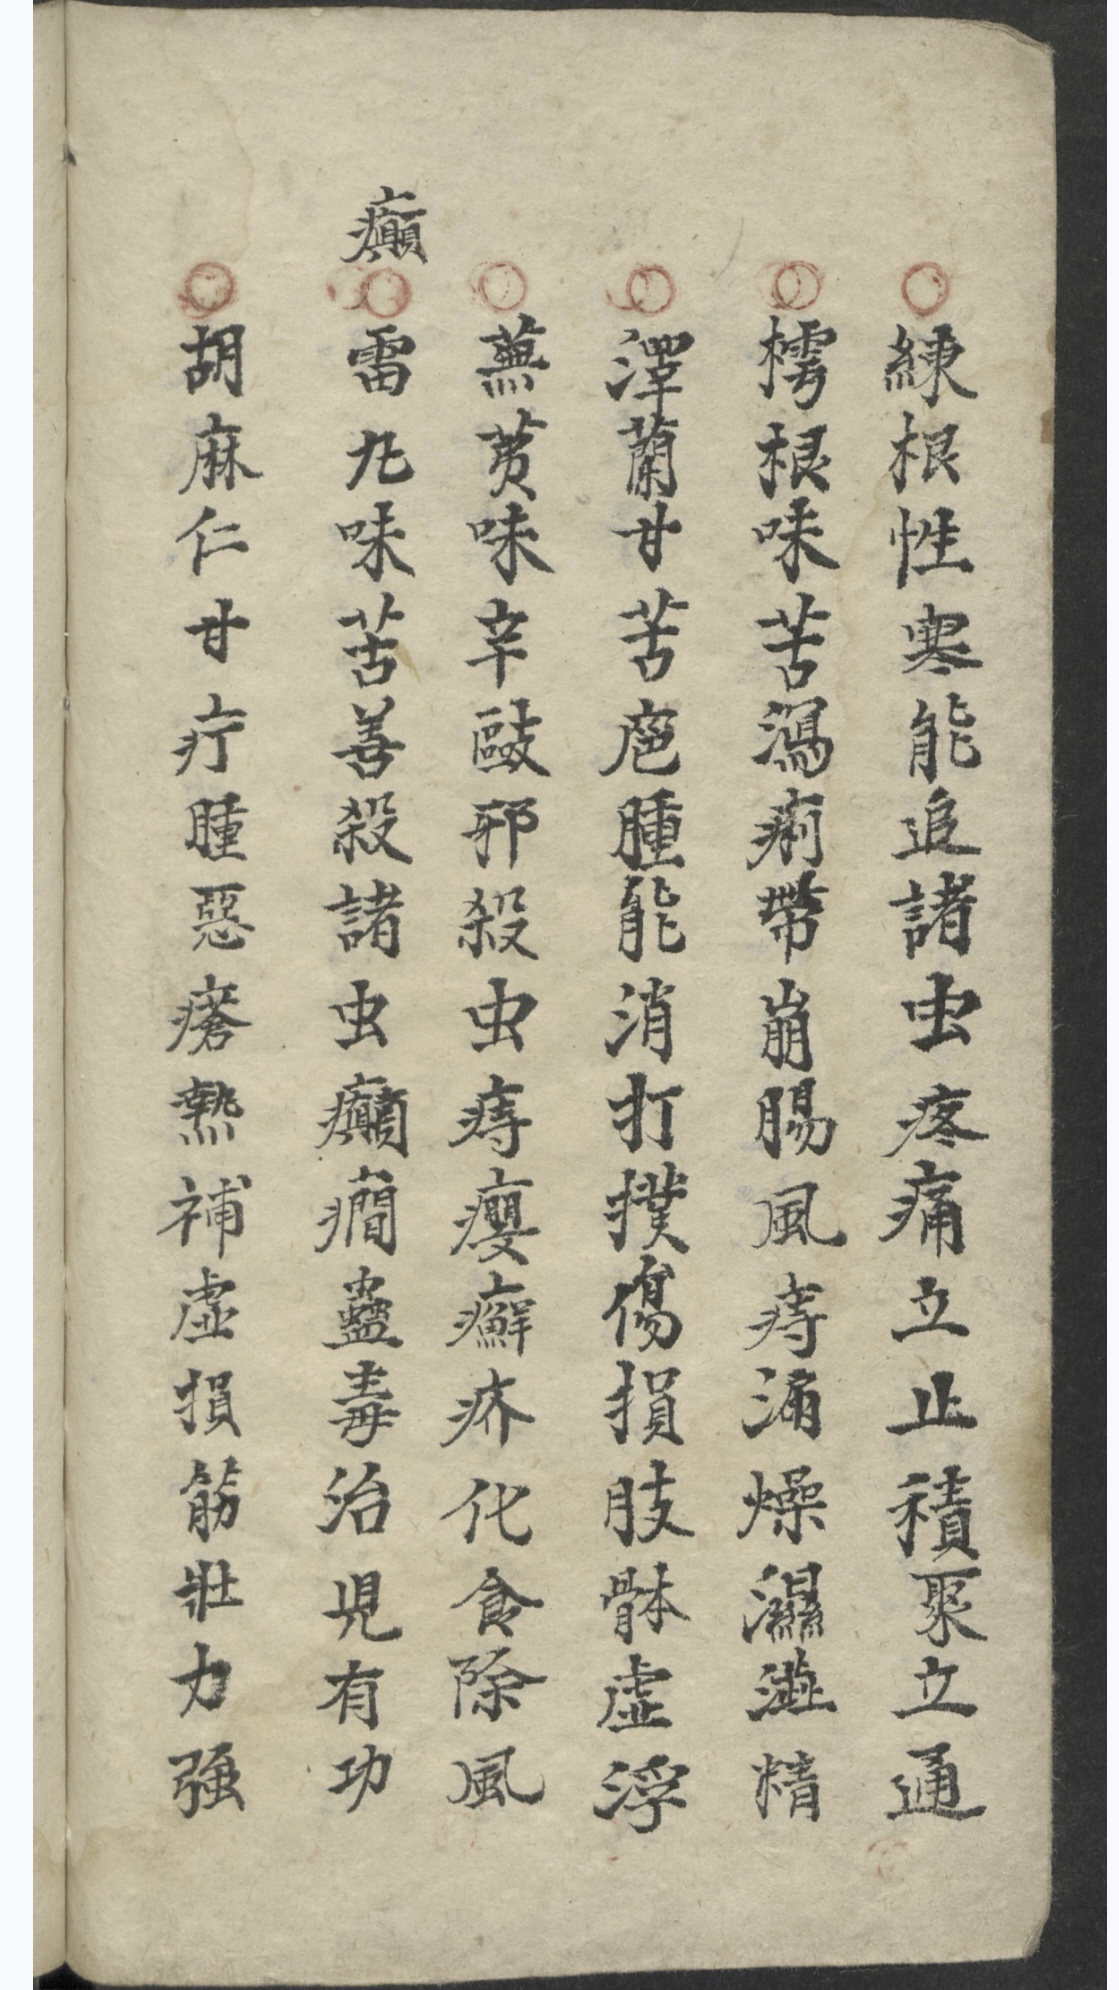 練根性寒能追諸虫疼痛立止積聚立通
樗根味苦瀉痢帶崩腸風痔漏燥濕澁精
澤蘭甘苦癰腫能消打撲傷損肢骵虛浮
蕪荑味辛敺邪殺虫痔癭癬疥化食除風
癲
雷丸味苦善殺諸虫癲癇蠱毒治児有功
胡麻仁甘疔腫惡瘡熱補虛損筋壯力強